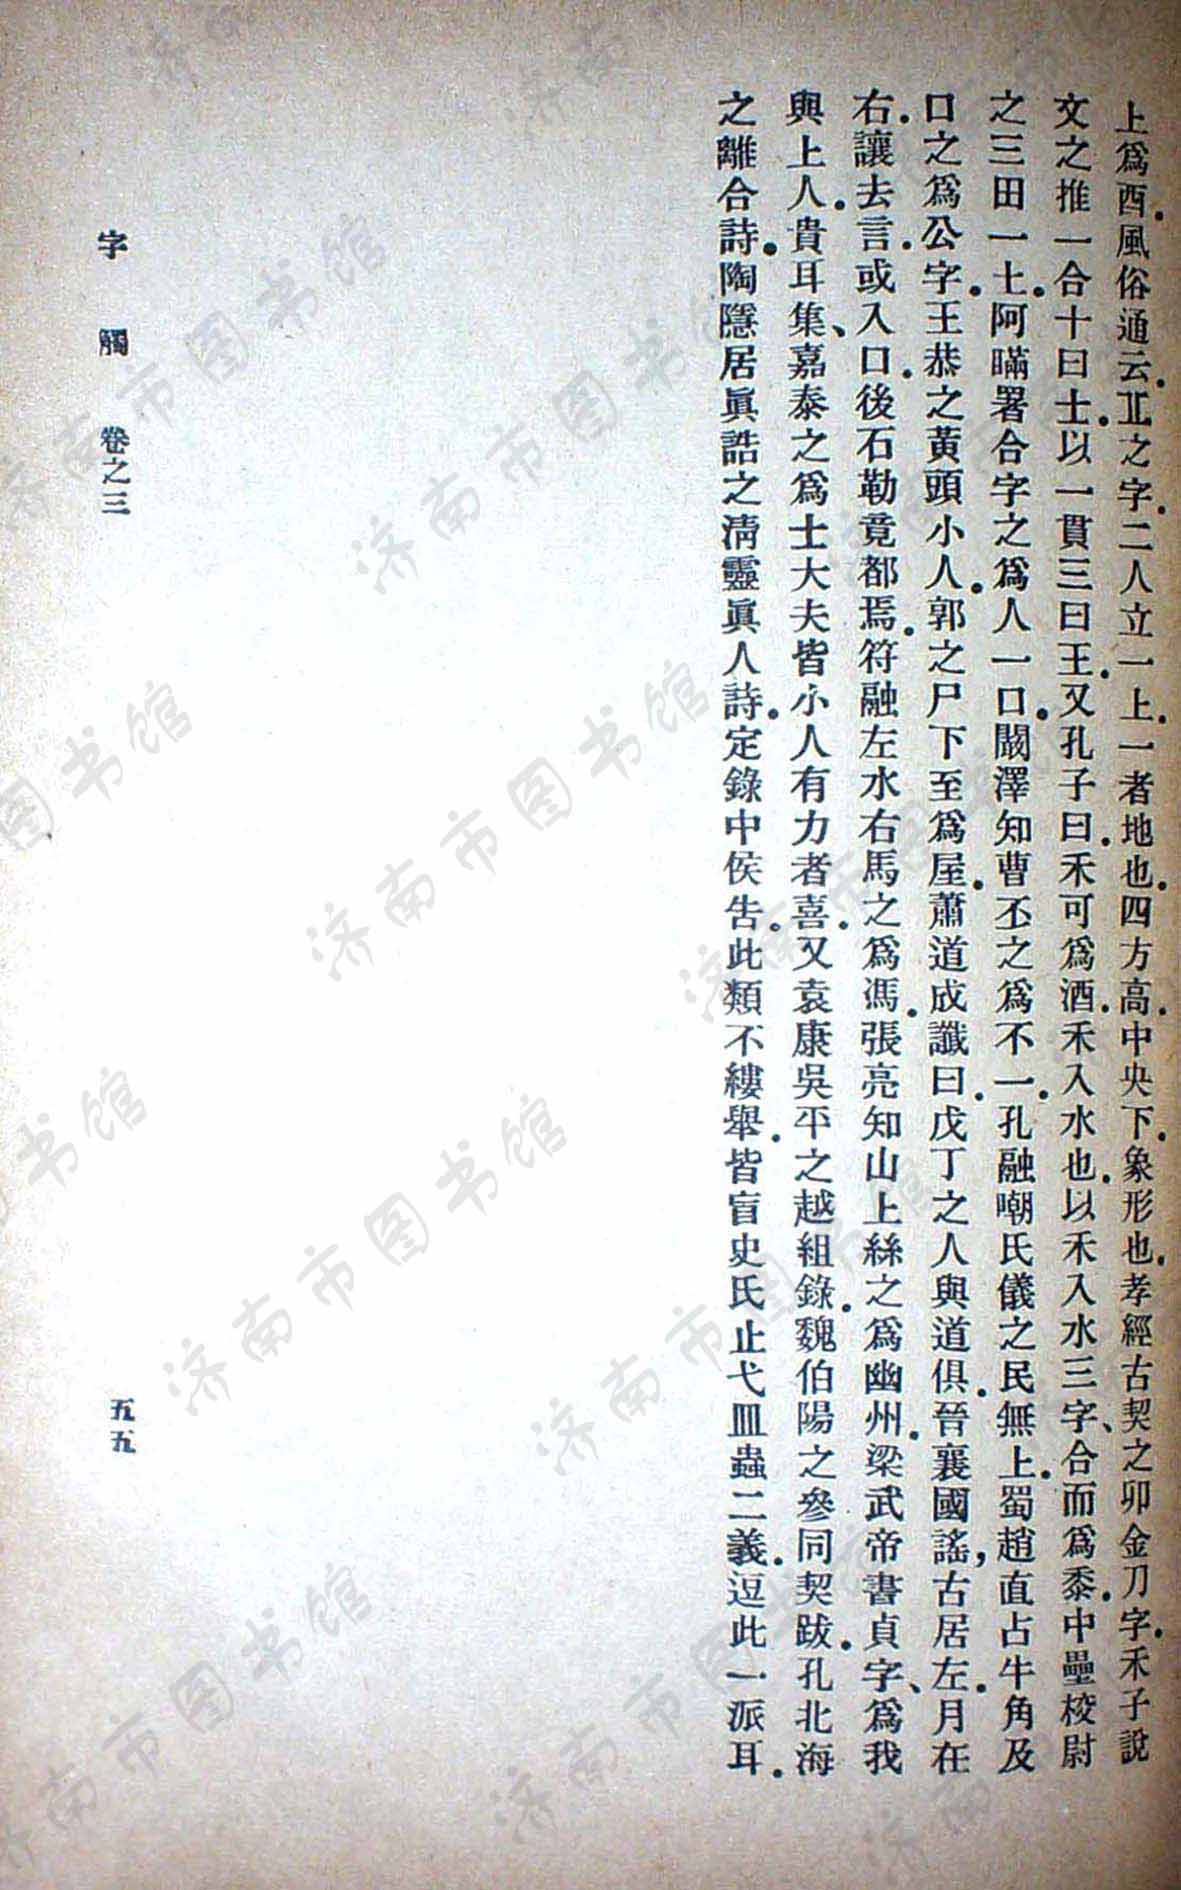 上爲酉．風俗通云．𠀉之字．二人立一上．一者地也．四方高．中央下．象形也．孝經古契之卯金刀字．禾子說
文之推一合十曰士．以一貫三曰王．又孔子曰．禾可爲酒．禾入水也．以禾入水三字、合而爲黍．中壘校尉
之三田一土．阿瞞署合字之爲人一口．闞澤知曹丕之爲不一．孔融嘲氏儀之民無上．蜀趙直占牛角及
口之爲公字．王恭之黃頭小人．郭之尸下至爲屋．蕭道成讖曰．戊丁之人與道俱．晉襄國謠，古居左．月在
右．讓去言．或入口．後石勒竟都焉．符融左水右馬之爲馮．張亮知山上絲之爲幽州．梁武帝書貞字、爲我
與上人．貴耳集、嘉泰之爲士大夫皆小人有力者喜．又袁康吳平之越組錄．魏伯陽之參同契跋．孔北海
之離合詩．陶隱居眞誥之淸靈眞人詩．定錄中侯告．此類不縷舉．皆盲史氏止弋皿蟲二義．逗此一派耳．
字觸 卷之三
五五
济南市图书馆